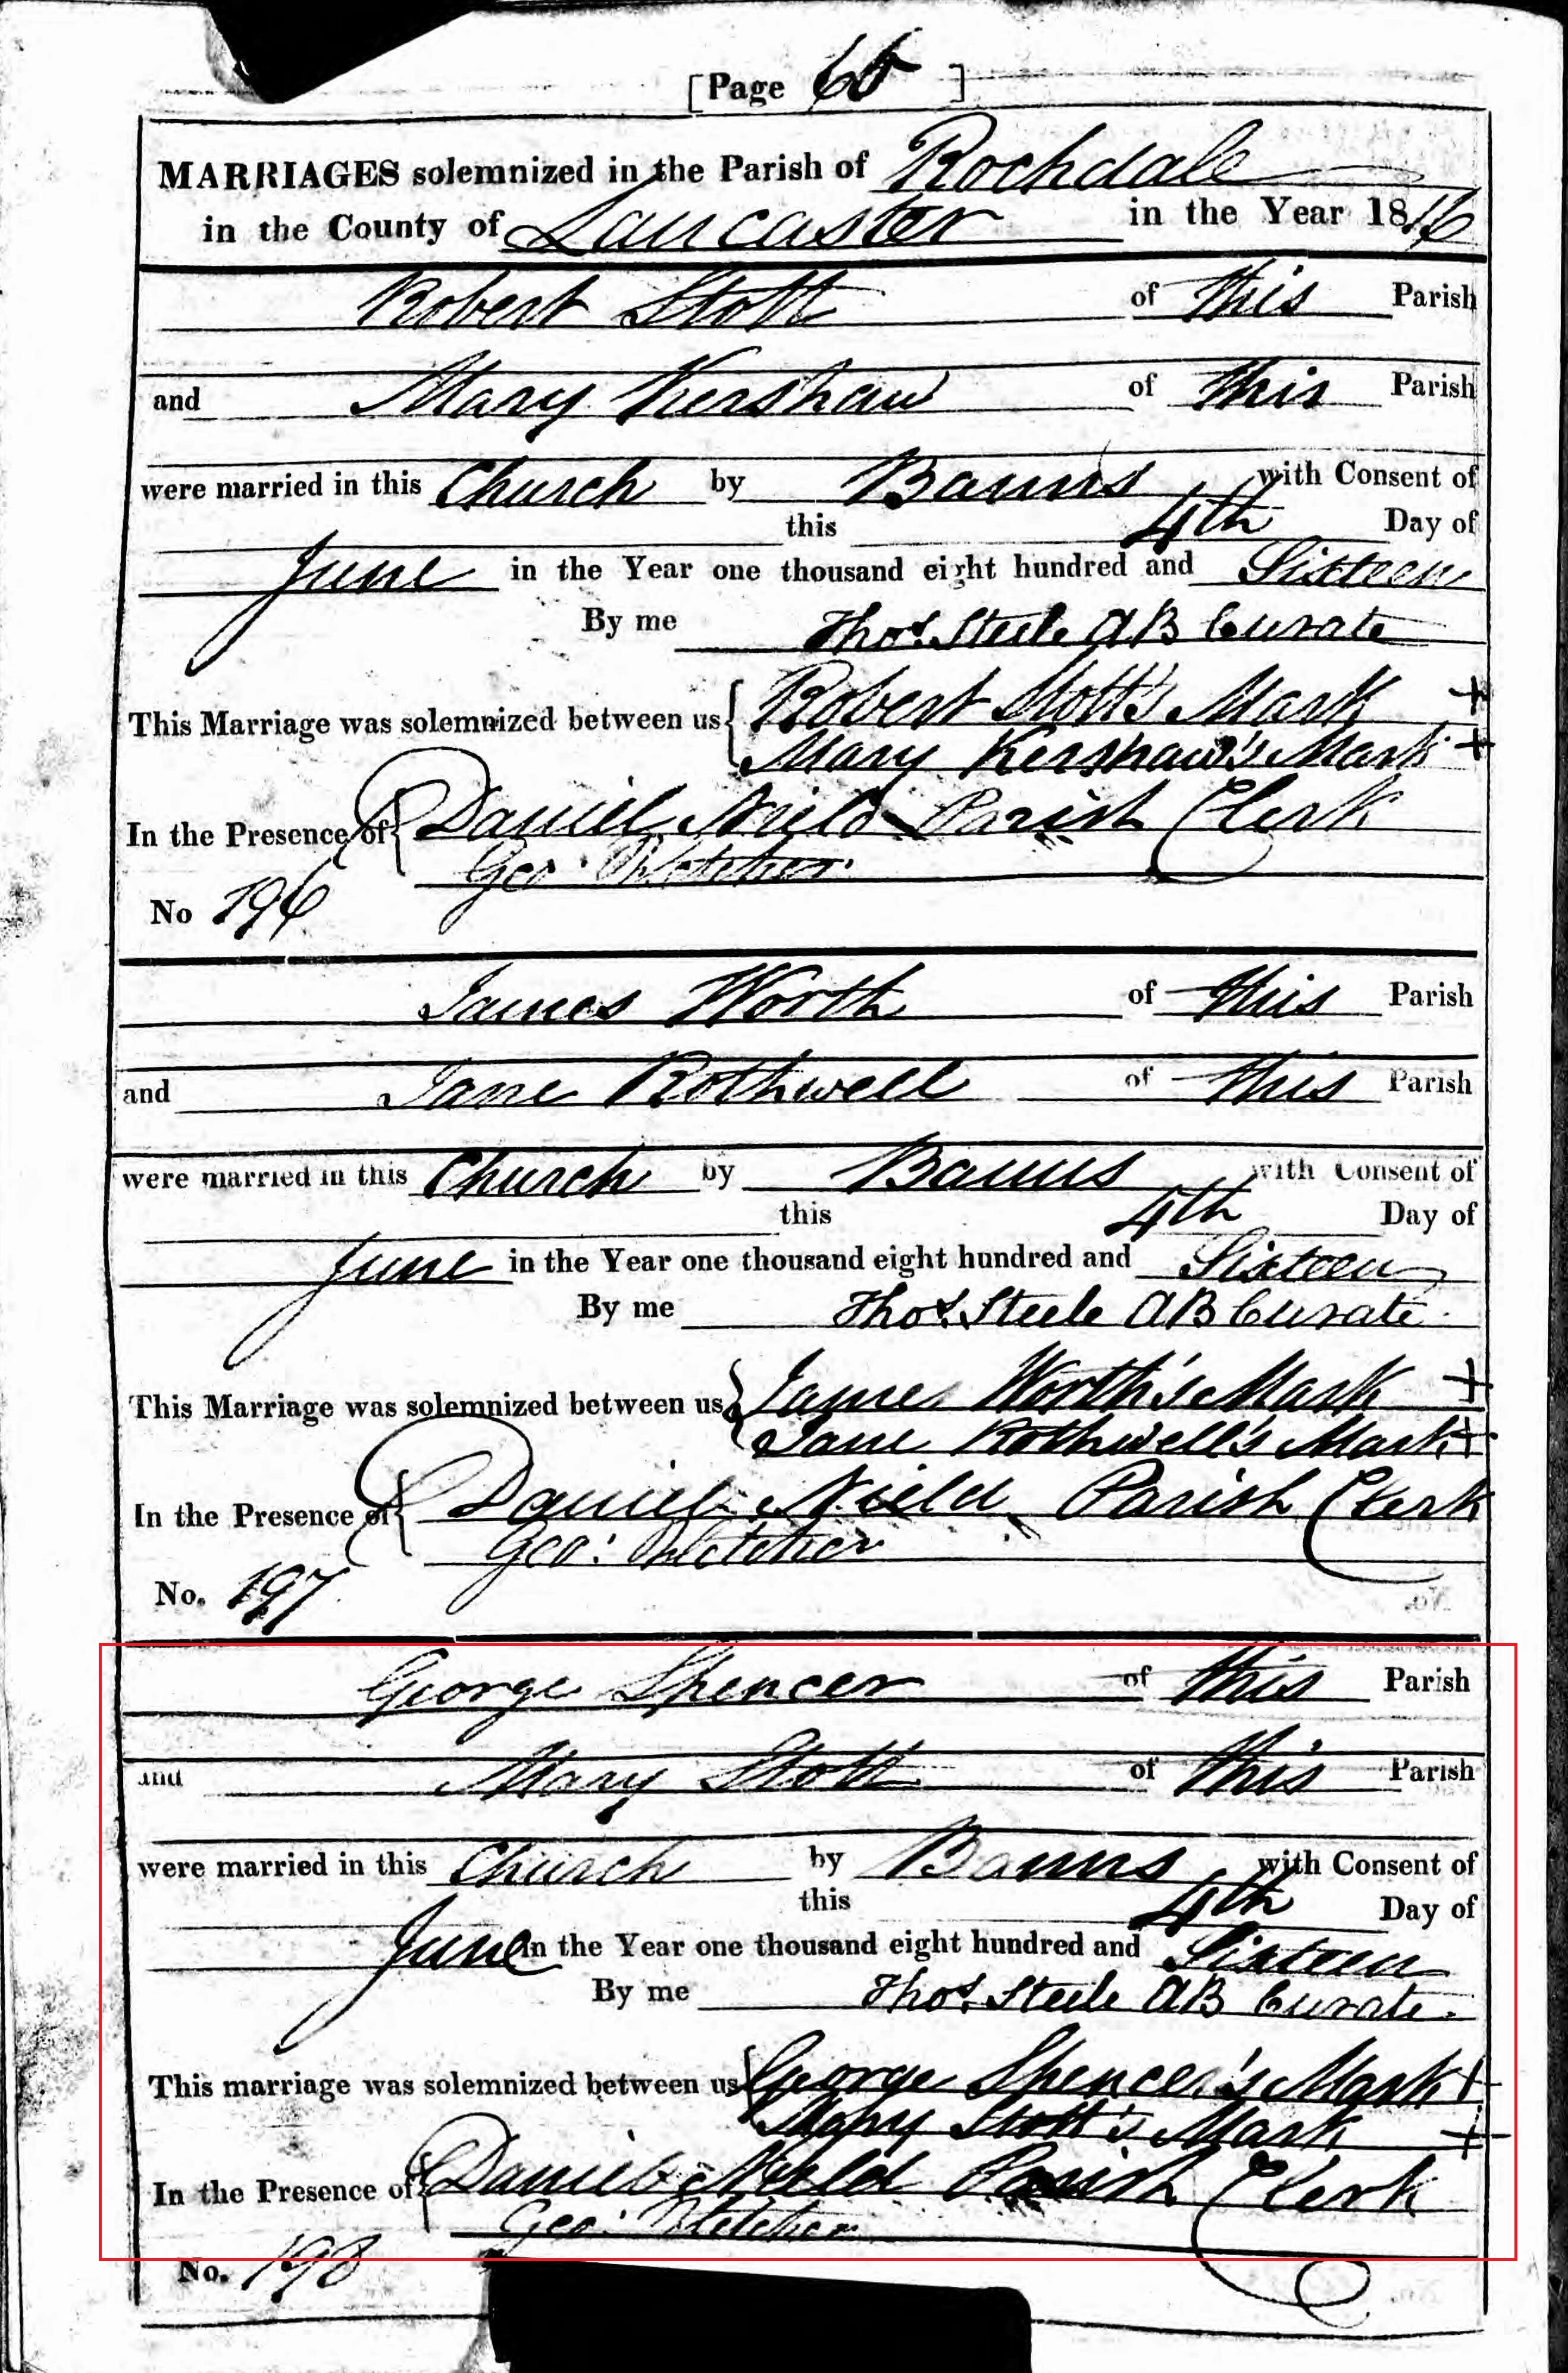 [Page 66 ]
MARRIAGES solemnized in the Parish of Rochdale
in the County of Lancaster in the Year 1816
Robert Stott of this Parish
and Mary Kershaw of this Parish
were married in this Church by Banns with Consent of
this 4th Day of
June in the Year one thousand eight hundred and Sixteen
By me Thos. Steele AB Curate
This Marriage was solemnized between us { Robert Stott's Mark +
Mary Kershaw's Mark +
In the Presence of { Daniel Nield Parish Clerk
Geo: Fletcher
No 196
James Worth of this Parish
and Jane Rothwell of this Parish
were married in this Church by Banns with Consent of
this 4th Day of
June in the Year one thousand eight hundred and Sixteen
By me Thos. Steele AB Curate
This Marriage was solemnized between us { James Worth's Mark +
Jane Rothwell's Mark +
In the Presence of { Daniel Nield Parish Clerk
Geo: Fletcher
No. 197
George Spencer of this Parish
and Mary Stott of this Parish
were married in this Church by Banns with Consent of
this 4th Day of
June in the Year one thousand eight hundred and Sixteen
By me Thos. Steele AB Curate
This marriage was solemnized between us { George Spencer's Mark +
Mary Stott's Mark +
In the Presence of { Daniel Nield Parish Clerk
Geo: Fletcher
No. 198